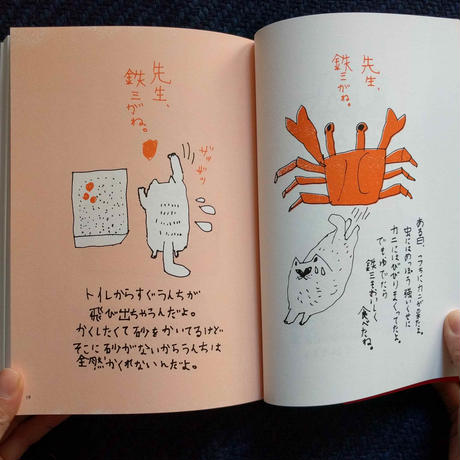 先生、
鉄三がね。
ザッ
ザッ
トイレからすぐうんちが
飛び出ちゃうんだよ。
かくしたくて砂をかいてるけど
そこに砂がないからうんちは
全然かくれないんだよ。
18
先生、
鉄三がね。
ある日、うちにカニが来たよ。
虫にはめっぽう強いくせに
カニにはびびりまくってたよ。
でもゆでたら
鉄三もおいしく
食べたね。